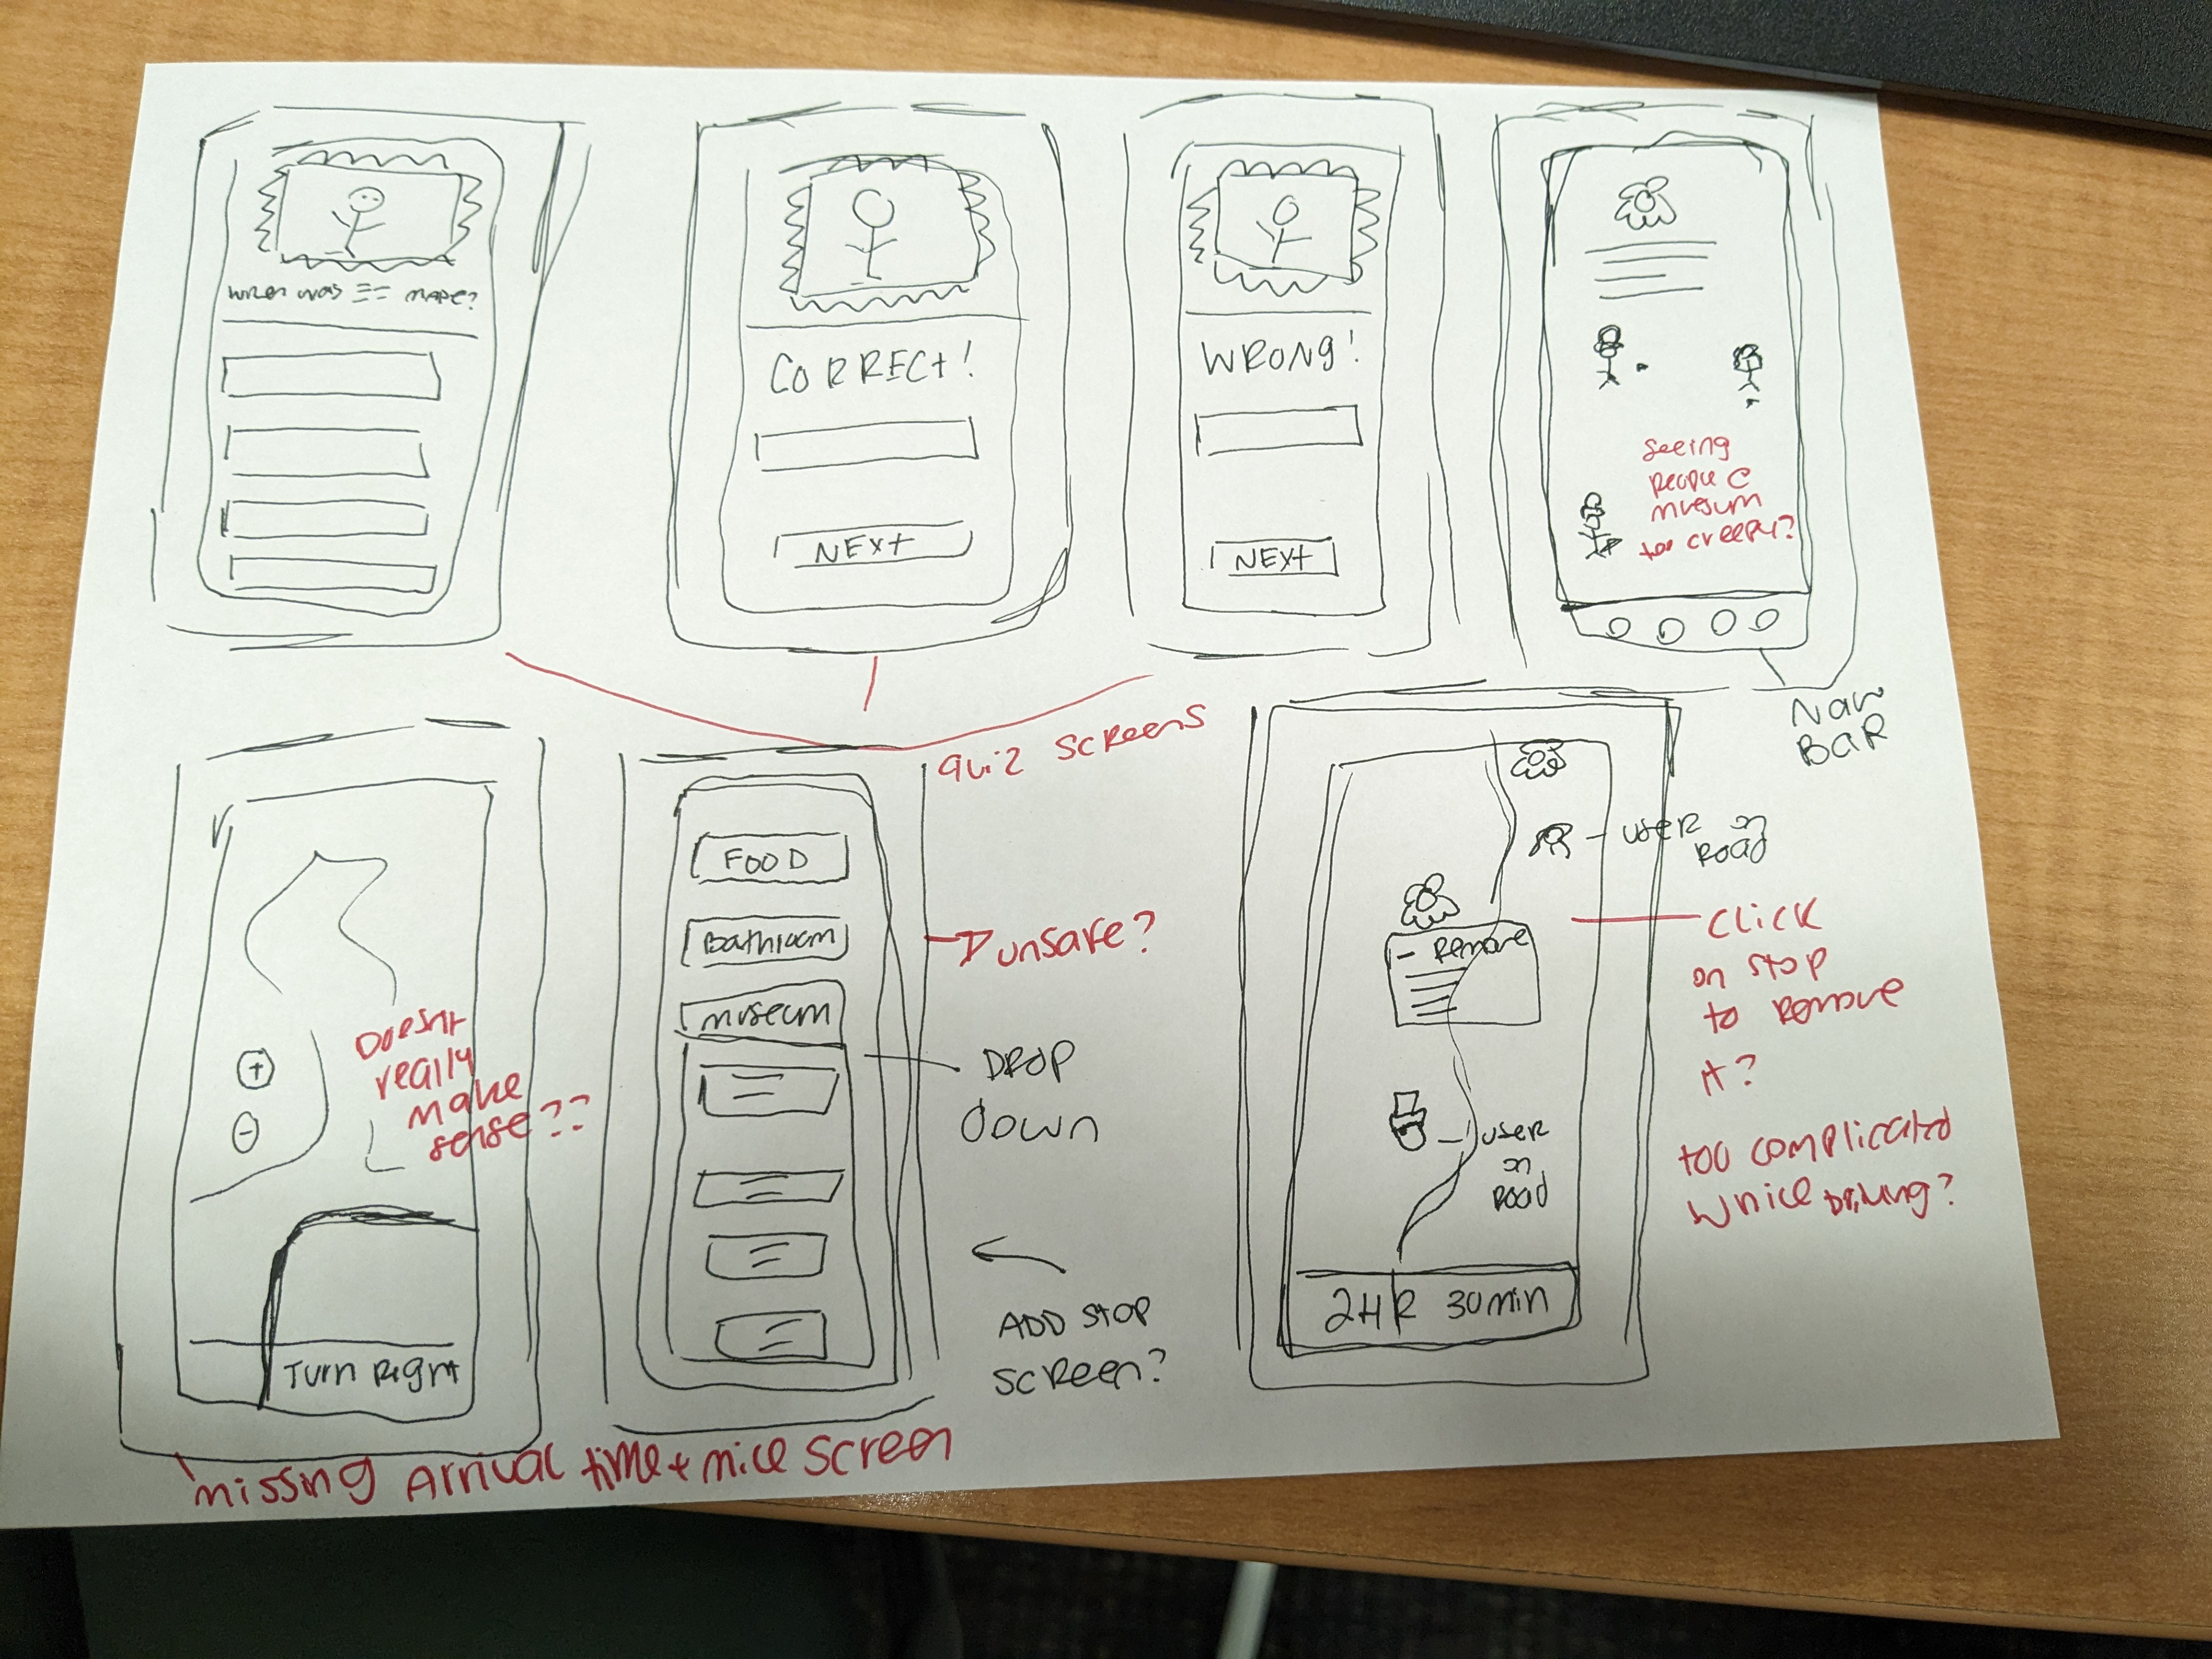 When was == made?
CORRECt!
NEXt
WRONg!
NEXt
seeing
people @
museum
too creepy?
Nav
BaR
quiz screens
Doesnt
really
make
sense??
+
-
Turn Right
FOOD
Bathroom
museum
unsafe?
DROP
down
ADD StOP
screen?
user on
Road
- Remove
user
on
Road
2HR 30min
click
on stop
to remove
it?
too complicated
while driving?
missing Arrival time + mile screen